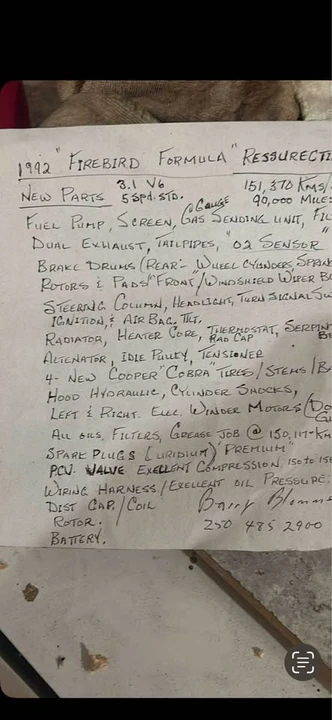 1992 "FIREBIRD FORMULA" RESSURECTI
NEW PARTS 3.1 V6 151,370 KMS/
5 SPD. STD. 90,000 MILES
FUEL PUMP, SCREEN, GAS GAUGE SENDING UNIT, FIL
DUAL EXHAUST, TAILPIPES, "O2 SENSOR"
BRAKE DRUMS (REAR- WHEEL CYLINDERS SPRIN
ROTORS & PADS "FRONT"/WINDSHIELD WIPER BL
STEERING COLUMN, HEADLIGHT, TURN SIGNAL
IGNITION, & AIR BAG, TILT,
RADIATOR, HEATER CORE, THERMOSTAT, SERPIN
RAD CAP BE
ALTENATOR, IDLE PULLEY, TENSIONER
4- NEW COOPER "COBRA" TIRES/STEMS/BA
HOOD HYDRAULIC, CYLINDER SHOCKS,
LEFT & RIGHT. ELEC. WINDER MOTORS (DO
ALL OILS, FILTERS, GREASE JOB @ 150,117-KM
SPARK PLUGS (URIDIUM) "PREMIUM"
PCV. VALVE EXELLENT COMPRESSION 150 TO 15
WIRING HARNESS/EXELLENT OIL PRESSURE.
DIST CAP./COIL Barry
ROTOR. 250 485 2900
BATTERY.